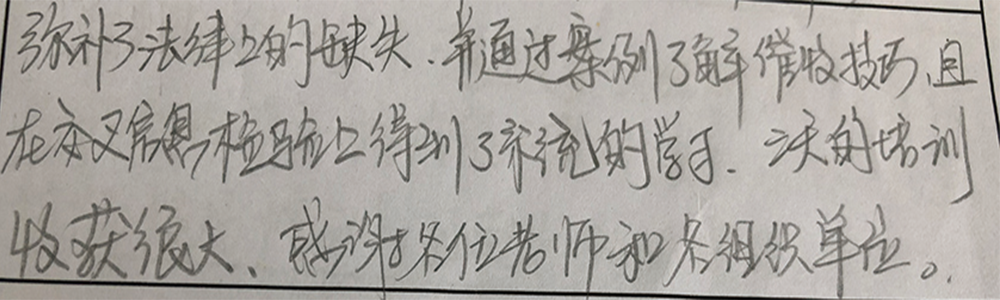 弥补了法律上的缺失、并通过案例了解催收技巧，且
在交叉信息检验上得到了系统的学习. 二天的培训
收获很大、感谢各位老师和各组织单位。